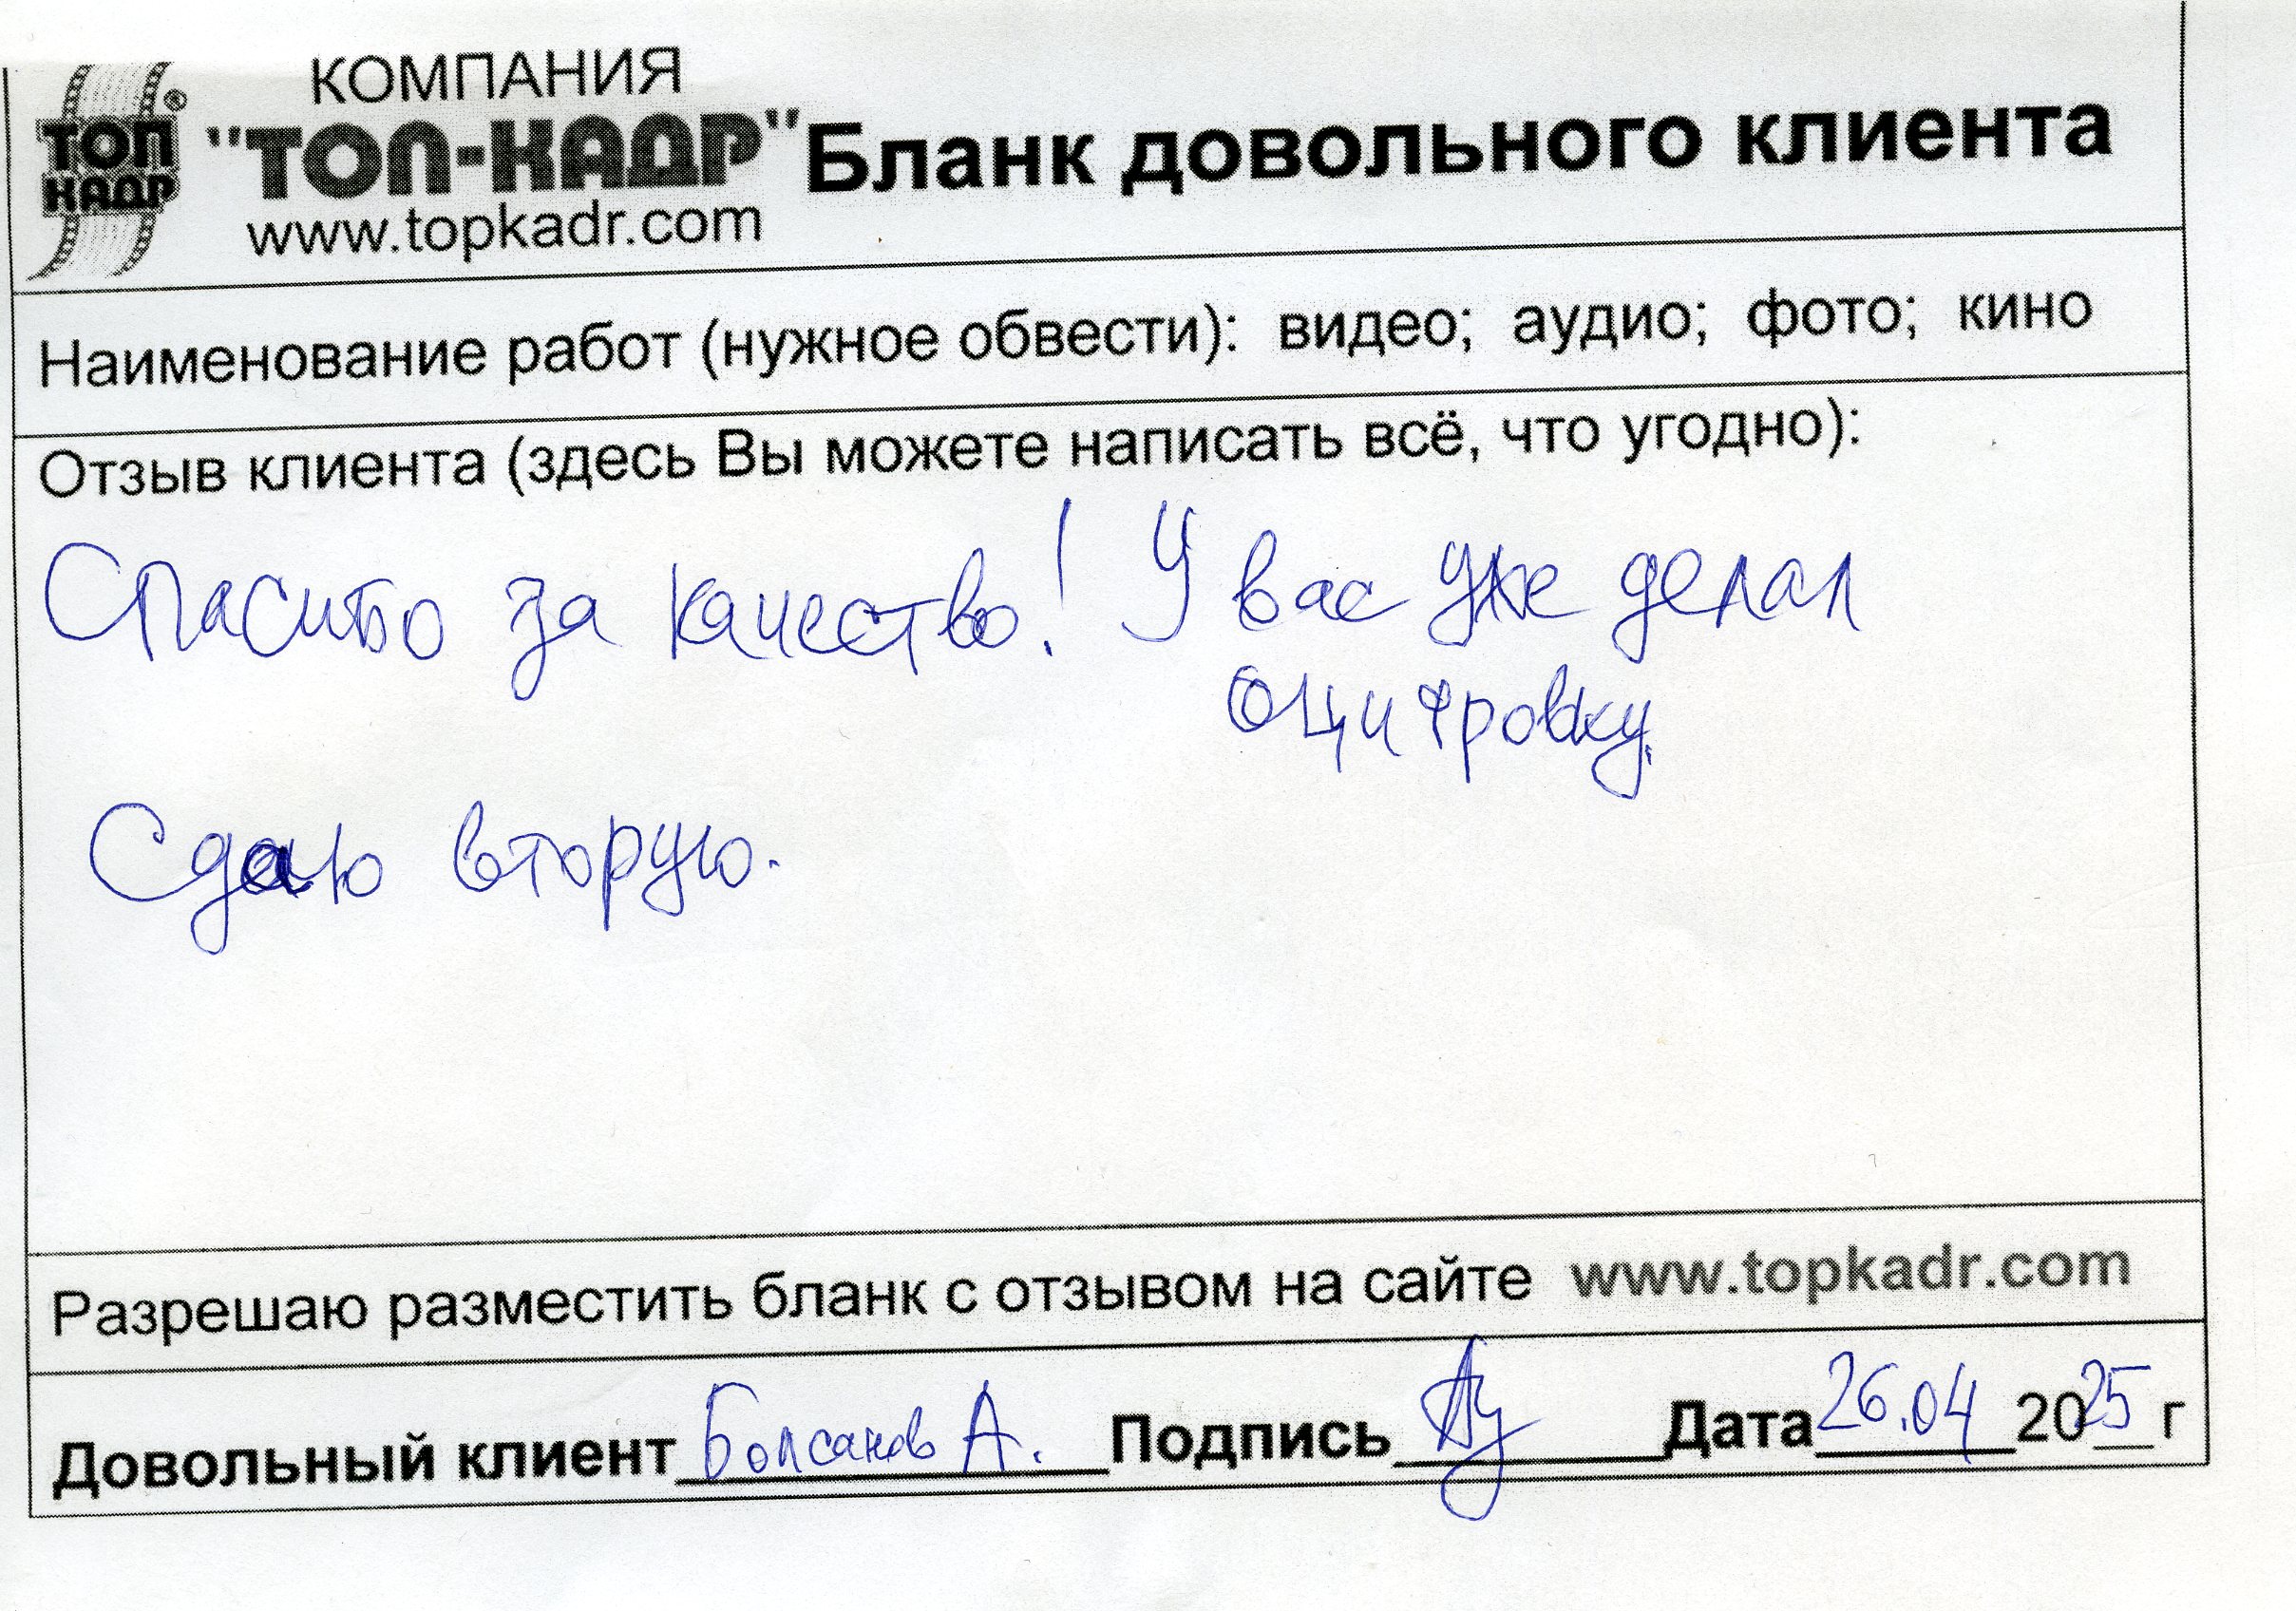 КОМПАНИЯ
ТОП КАДР ®
"ТОП-КАДР" Бланк довольного клиента
www.topkadr.com
Наименование работ (нужное обвести): видео; аудио; фото; кино
Отзыв клиента (здесь Вы можете написать всё, что угодно):
Спасибо за качество! У вас уже делал
оцифровку.
Сдаю вторую.
Разрешаю разместить бланк с отзывом на сайте www.topkadr.com
Довольный клиент Болсанов А. Подпись Дата 26.04 2025 г